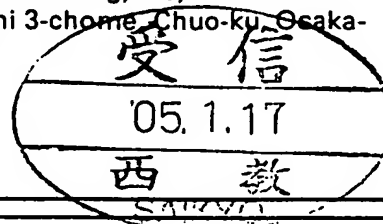 ni 3-chome, Chuo-ku, Osaka-
受信
'05. 1. 17
西教
SAIKYO